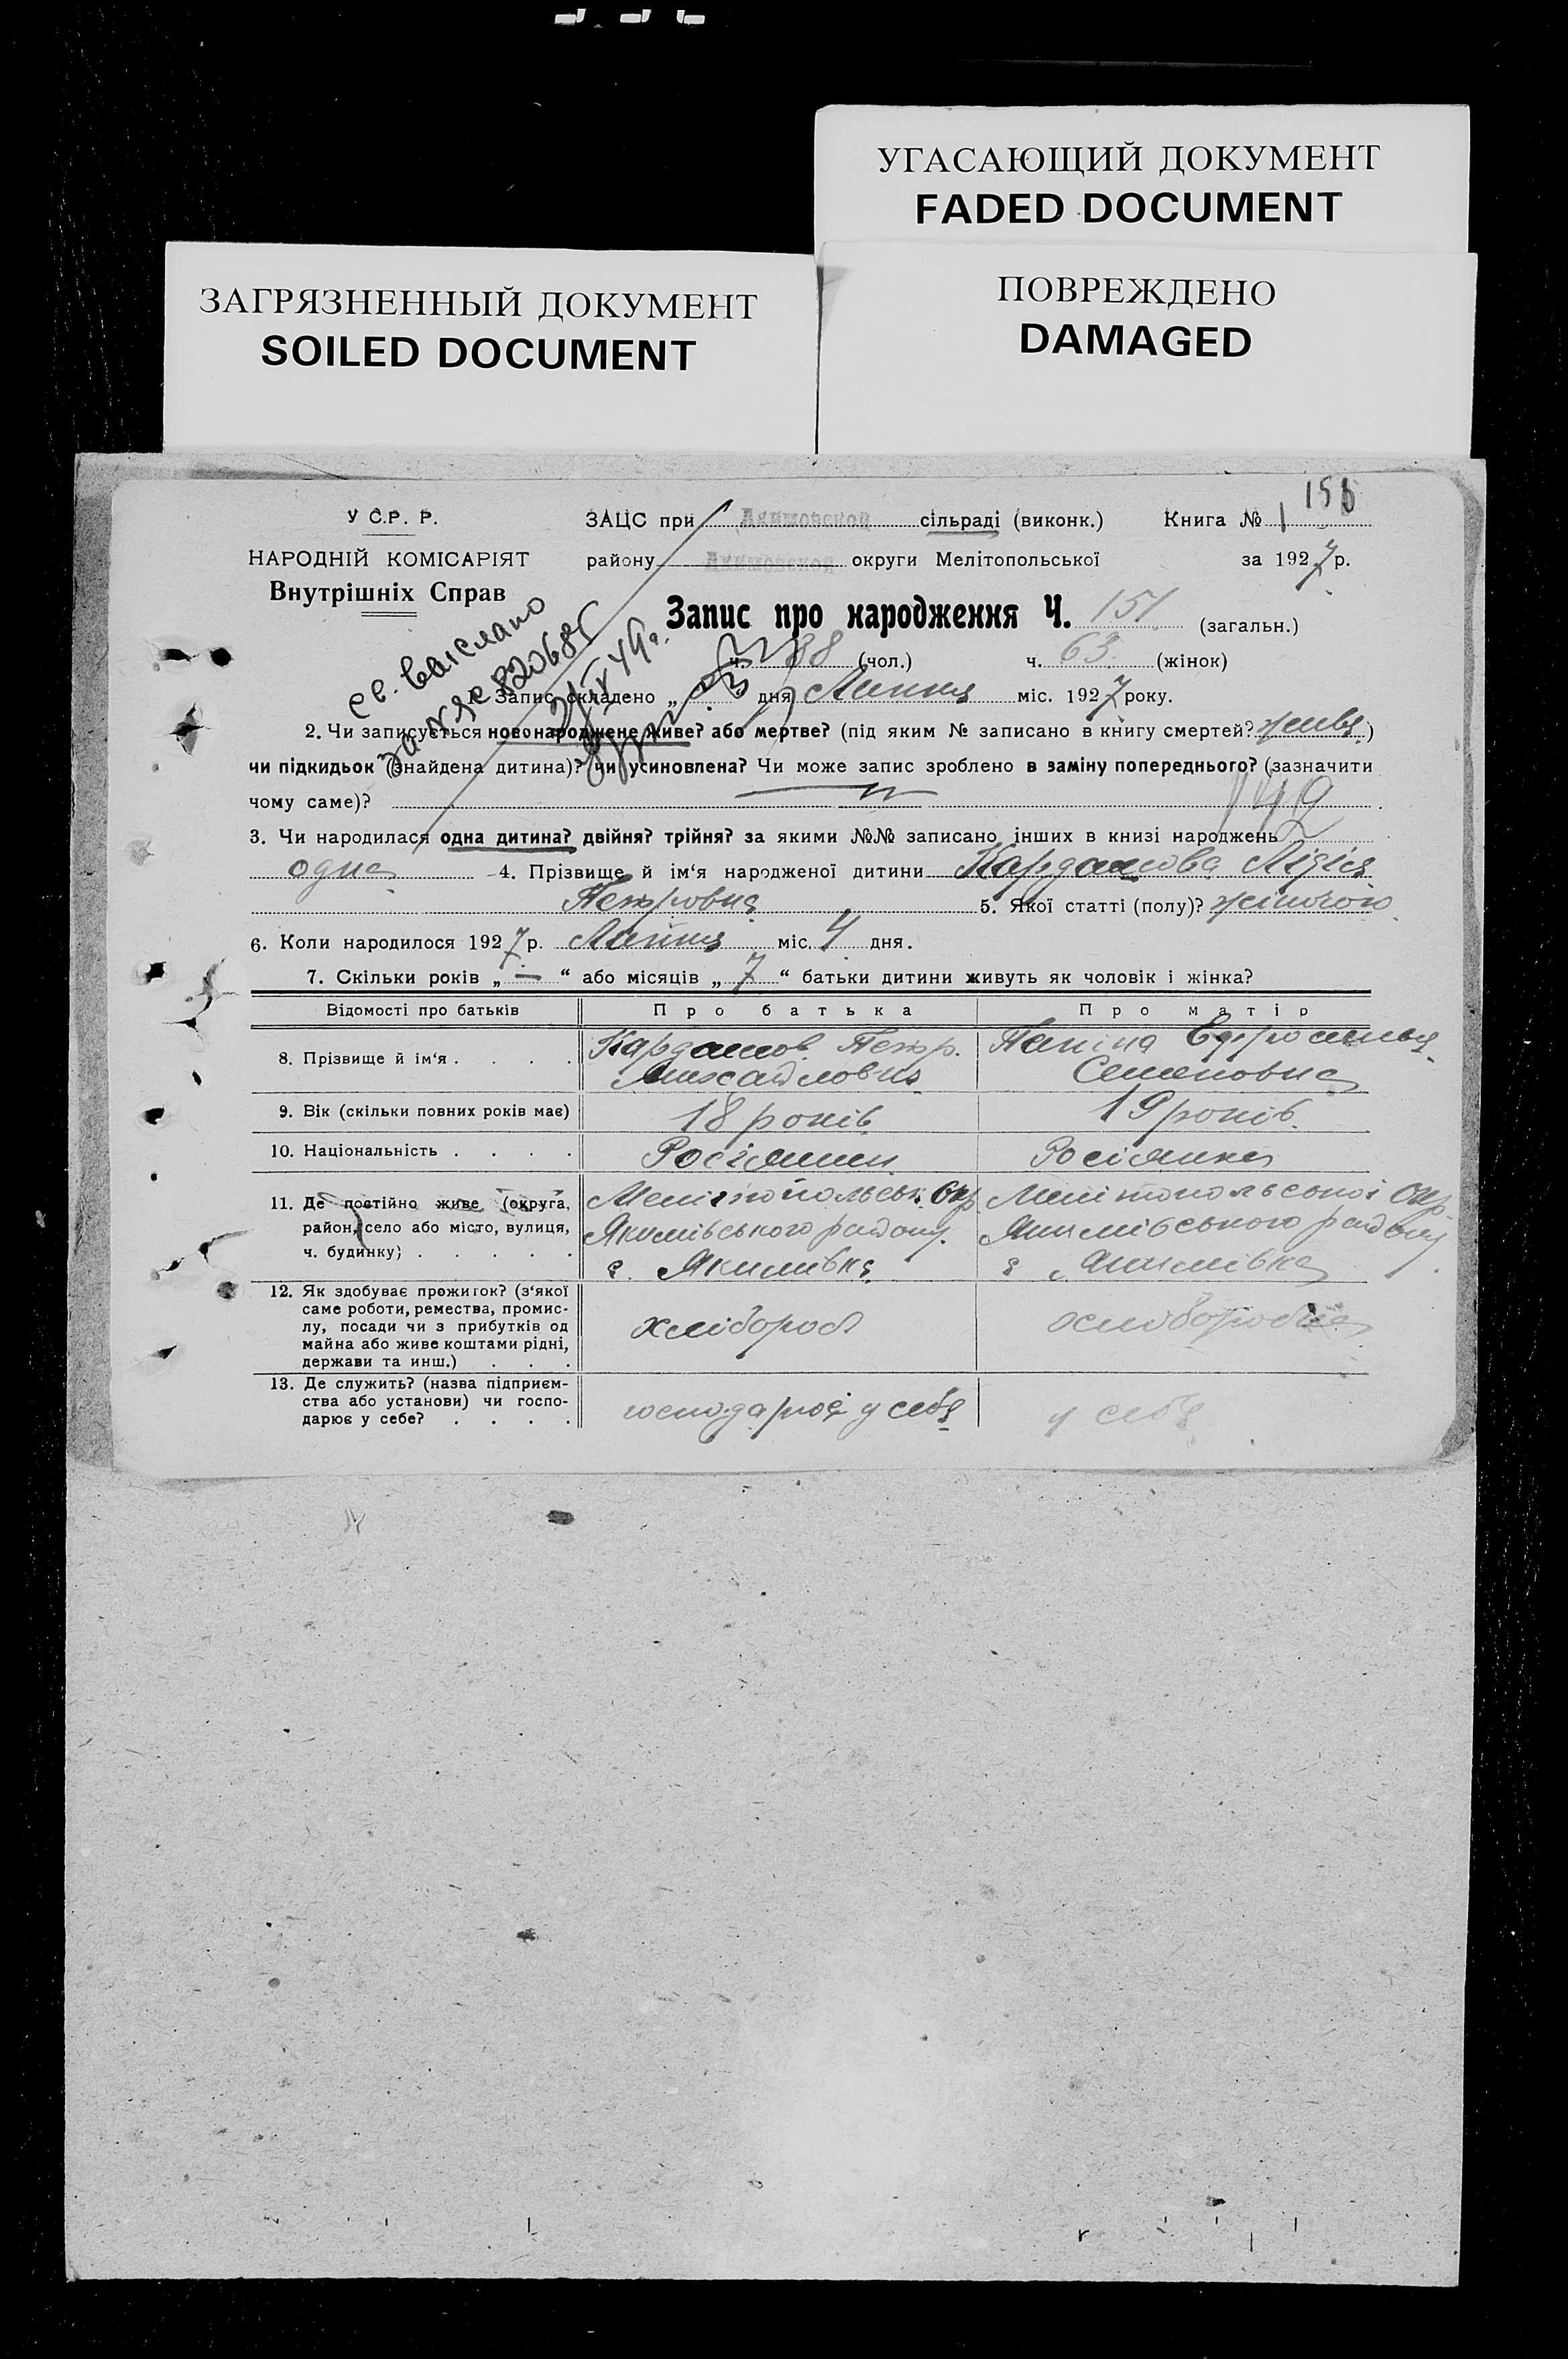 УГАСАЮЩИЙ ДОКУМЕНТ
FADED DOCUMENT
ЗАГРЯЗНЕННЫЙ ДОКУМЕНТ
SOILED DOCUMENT
ПОВРЕЖДЕНО
DAMAGED
У С.Р. Р.
НАРОДНІЙ КОМІСАРІЯТ
Внутрішніх Справ
ЗАЦС при Акимовской сільраді (виконк.) Книга № 1
району Акимовской округи Мелітопольської за 1927 р.
Запис про народження Ч. 151 (загальн.)
ч. 88 (чол.) ч. 63 (жінок)
св. выслано
Запис складено „ дня Липня міс. 1927 року.
2. Чи записується новонароджене живе? або мертве? (під яким № записано в книгу смертей? живе)
чи підкидьок (знайдена дитина)? чи усиновлена? Чи може запис зроблено в заміну попереднього? (зазначити
чому саме)?
149
3. Чи народилася одна дитина? двійня? трійня? за якими №№ записано інших в книзі народжень
одна 4. Прізвище й ім‘я народженої дитини Кардашова Лідія
Петровна 5. Якої статті (полу)? жіночого
6. Коли народилося 1927 р. Липня міс. 4 дня.
7. Скільки років „ — “ або місяців „ 7 “ батьки дитини живуть як чоловік і жінка?
Відомості про батьків Про батька Про матір
8. Прізвище й ім‘я . . . . Кардашов Петр. Михайлович Папіна Ефросинья Семеновна
9. Вік (скільки повних років має) 18 років 19 років
10. Національність . . . . Росіянин Росіянка
11. Де постійно живе (округа, район, село або місто, вулиця, ч. будинку) . . . . . Мелітопольськ. Окр Якимівського району. с. Якимівка Мелітопольської Окр Якимівського району с Якимівка
12. Як здобуває прожиток? (з‘якої саме роботи, ремества, промислу, посади чи з прибутків од майна або живе коштами рідні, держави та инш.) . . . хлібороб хлібороб
13. Де служить? (назва підприємства або установи) чи господарює у себе? . . . . господарює у себе у себе